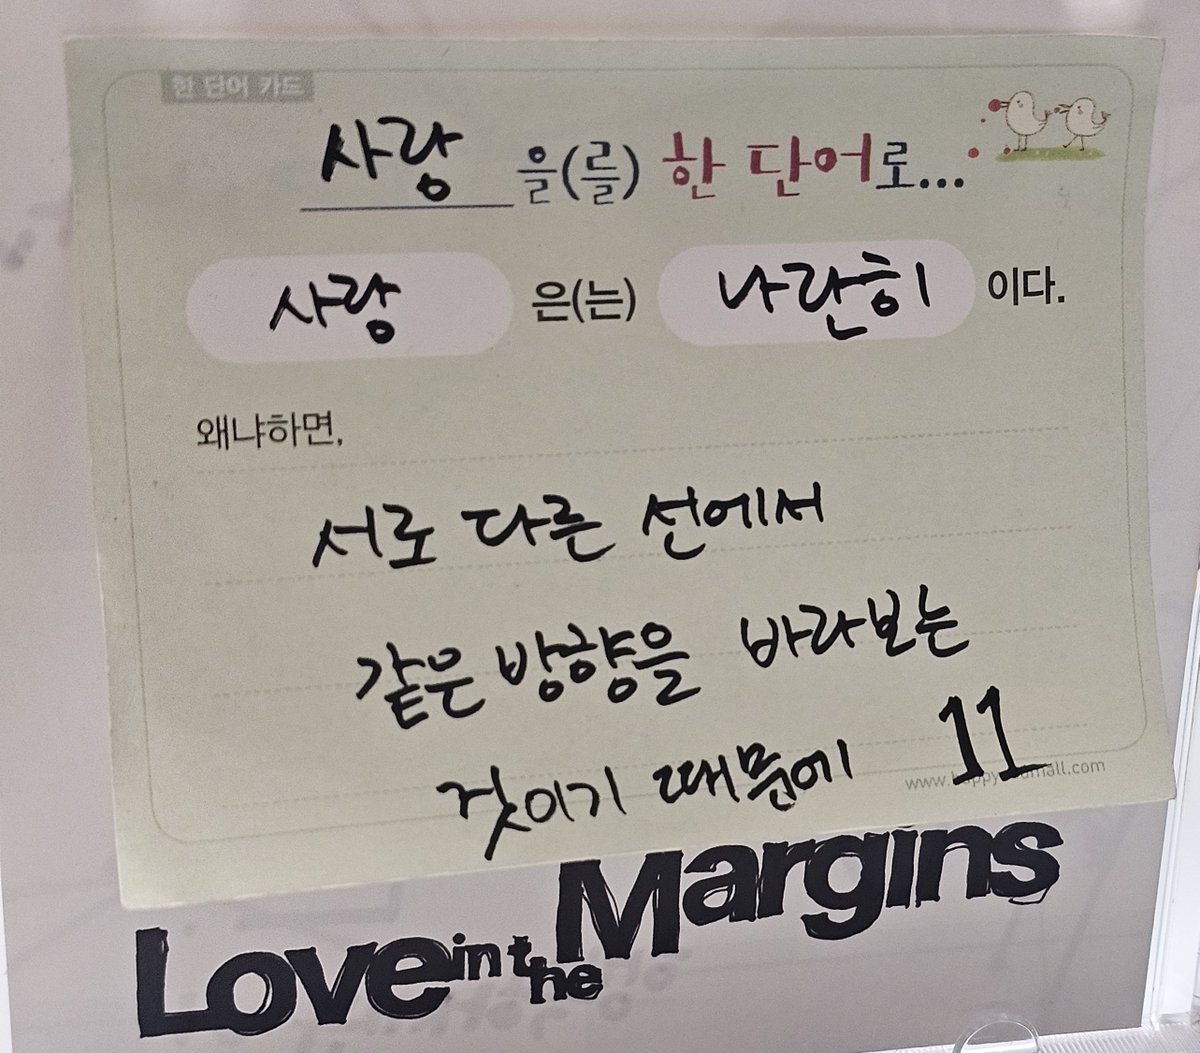 한 단어 카드
사랑 을(를) 한 단어로...
사랑 은(는) 나란히 이다.
왜냐하면,
서로 다른 선에서
같은 방향을 바라보는
것이기 때문에 11
Love in the Margins